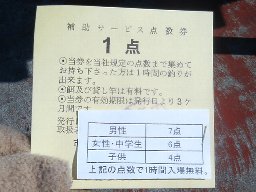 補助サービス点数券
1点
◎当券を当社規定の点数まで集めて
お持ち下さった方は1時間の釣りが
出来ます。
◎餌及び貸し竿は有料です。
◎当券の有効期限は発行日より3ヶ
月間です。
発行
取扱者
男性 7点
女性・中学生 6点
子供 4点
上記の点数で1時間入場無料。